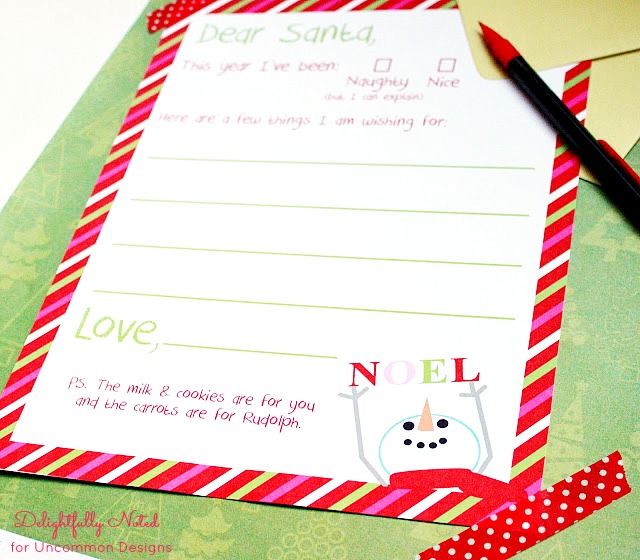 Dear Santa,
This year I've been:
Naughty Nice
(but I can explain)
Here are a few things I am wishing for:
Love,
NOEL
PS. The milk & cookies are for you
and the carrots are for Rudolph.
Delightfully Noted
for Uncommon Designs